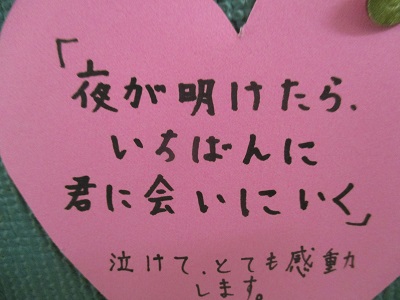 「夜が明けたら、
いちばんに
君に会いにいく」
泣けて、とても感動
します。